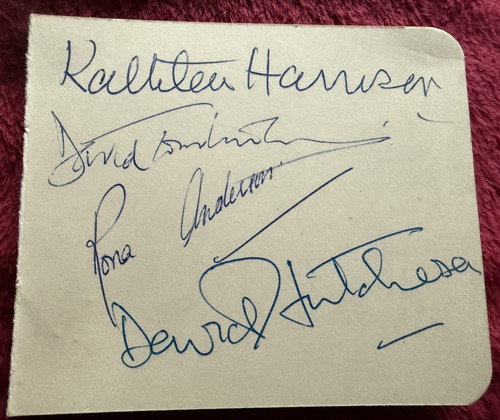 Kathleen Harrison
David
Rona Anderson
David Hutcheson